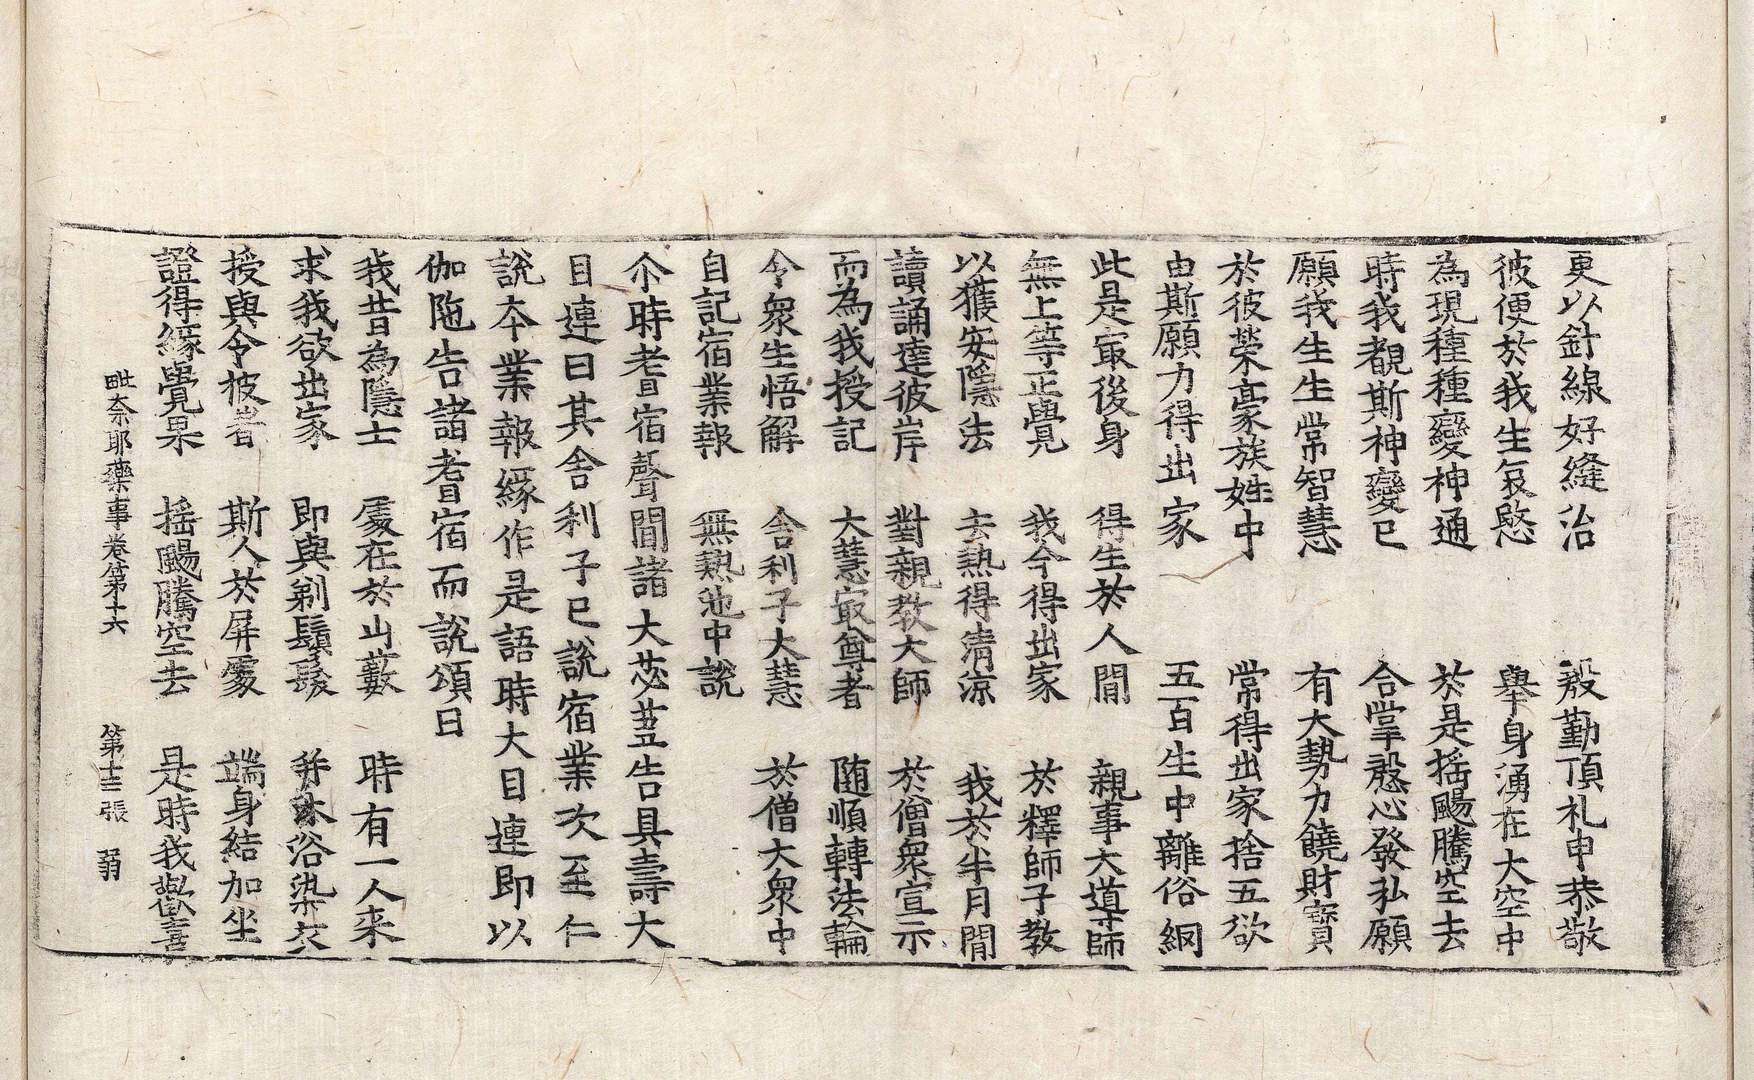 更以針線好縫治　殷勤頂礼申恭敬
彼便於我生哀愍　舉身湧在大空中
為現種種變神通　於是揺颺騰空去
時我覩斯神變已　合掌慇心發私願
願我生生常智慧　有大勢力饒財寶
於彼榮豪族姓中　常得出家捨五欲
由斯願力得出家　五百生中離俗網
此是冣後身　得生於人間　親事大導師
無上等正覺　我今得出家　於釋師子教
以獲安隱法　去熱得清涼　我於半月間
讀誦達彼岸　對親教大師　於僧衆宣示
而為我授記　大慧冣尊者　随順轉法輪
令衆生悟解　舎利子大慧　於僧大衆中
自記宿業報　無熱池中說
尒時耆宿聲聞諸大苾蒭告具壽大
目連曰其舎利子已說宿業次至仁
說本業報緣作是語時大目連即以
伽陁告諸耆宿而說頌曰
我昔為隱士　處在於山藪　時有一人来
求我欲出家　即與剃鬚髮　并沐浴染衣
授與令披著　斯人於屏處　端身結加坐
證得緣覺果　揺颺騰空去　是時我歡喜
毗奈耶藥事卷第十六　第十三張　翁